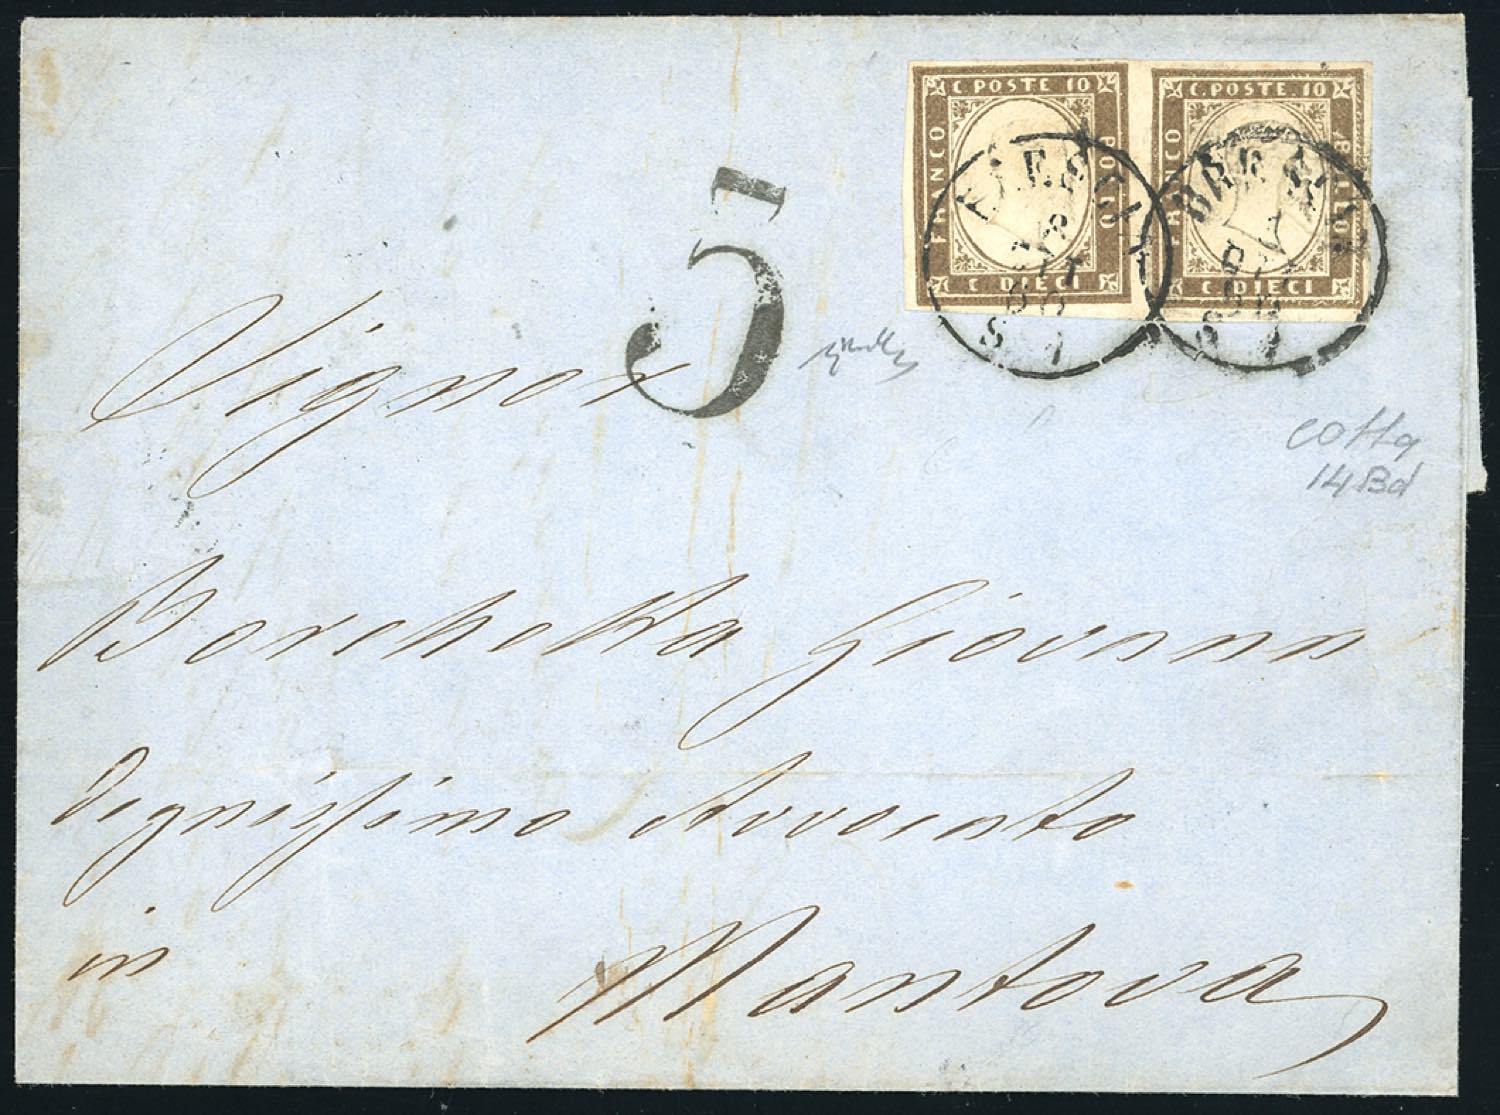 C. POSTE 10
FRANCO
BOLLO
C DIECI
C. POSTE 10
FRANCO
BOLLO
C DIECI
BRESCIA
BRESCIA
5
Signor
Borchetta Giovanni
Degnissimo Avvocato
in
Mantova
14Bd